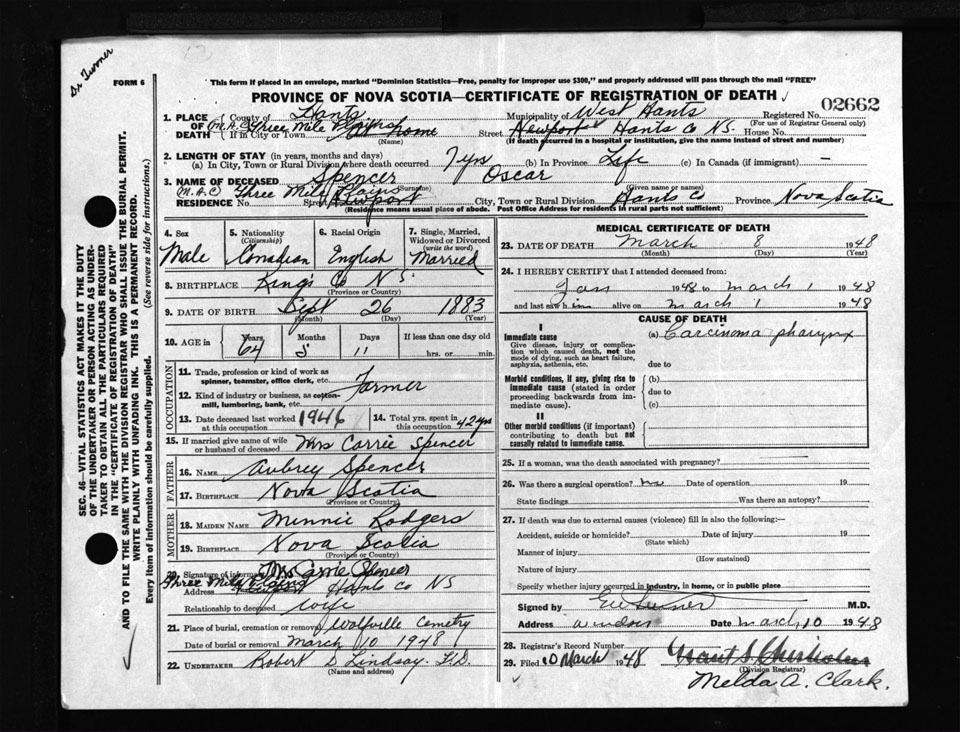 Dr Turner
FORM 6
This form if placed in an envelope, marked "Dominion Statistics—Free, penalty for improper use $300," and properly addressed will pass through the mail "FREE"
PROVINCE OF NOVA SCOTIA—CERTIFICATE OF REGISTRATION OF DEATH
02662
1. PLACE OF DEATH { County of Hants Municipality of West Hants Registered No.
(For use of Registrar General only)
(M.A.C) Three Mile Plains If in City or Town at home Street Newport Hants Co NS. House No.
(Name) (If death occurred in a hospital or institution, give the name instead of street and number)
2. LENGTH OF STAY (in years, months and days)
(a) In City, Town or Rural Division where death occurred 7 yrs (b) In Province Life (c) In Canada (if immigrant) —
3. NAME OF DECEASED Spencer Oscar
(Surname) (Given name or names)
(M.A.C) Three Mile Plains
RESIDENCE No. Street Newport City, Town or Rural Division Hants Co Province Nova Scotia
(Residence means usual place of abode. Post Office Address for residents in rural parts not sufficient)
SEC. 46—VITAL STATISTICS ACT MAKES IT THE DUTY
OF THE UNDERTAKER OR PERSON ACTING AS UNDER-
TAKER TO OBTAIN ALL THE PARTICULARS REQUIRED
IN THE "CERTIFICATE OF REGISTRATION OF DEATH"
AND TO FILE THE SAME WITH THE DIVISION REGISTRAR WHO SHALL ISSUE THE BURIAL PERMIT.
WRITE PLAINLY WITH UNFADING INK. THIS IS A PERMANENT RECORD.
Every item of information should be carefully supplied. (See reverse side for instructions.)
4. Sex Male
5. Nationality (Citizenship) Canadian
6. Racial Origin English
7. Single, Married, Widowed or Divorced (write the word) Married
8. BIRTHPLACE King's Co NS.
(Province or Country)
9. DATE OF BIRTH Sept 26 1883
(Month) (Day) (Year)
10. AGE in { Years 64 Months 5 Days 11 If less than one day old hrs. or min.
OCCUPATION
11. Trade, profession or kind of work as spinner, teamster, office clerk, etc. Farmer
12. Kind of industry or business, as cotton-mill, lumbering, bank, etc.
13. Date deceased last worked at this occupation 1946
14. Total yrs. spent in this occupation 42 yrs
15. If married give name of wife or husband of deceased Mrs Carrie Spencer
FATHER
16. NAME Aubrey Spencer
17. BIRTHPLACE Nova Scotia
(Province or Country)
MOTHER
18. MAIDEN NAME Minnie Rodgers
19. BIRTHPLACE Nova Scotia
(Province or Country)
20. Signature of informant Mrs Carrie Spencer
Address Three Mile Plains Newport Hants Co NS
Relationship to deceased wife
21. Place of burial, cremation or removal Wolfville Cemetry
Date of burial or removal March 10 1948
22. UNDERTAKER Robert D Lindsay. F.D.
(Name and address)
MEDICAL CERTIFICATE OF DEATH
23. DATE OF DEATH March 8 1948
(Month) (Day) (Year)
24. I HEREBY CERTIFY that I attended deceased from:
Jan 1948 to March 1 1948
and last saw him alive on March 1 1948
CAUSE OF DEATH
I
Immediate cause
Give disease, injury or complication which caused death, not the mode of dying, such as heart failure, asphyxia, asthenia, etc.
(a) Carcinoma pharynx
due to
Morbid conditions, if any, giving rise to immediate cause (stated in order proceeding backwards from immediate cause).
(b)
due to
(c)
II
Other morbid conditions (if important) contributing to death but not causally related to immediate cause.
25. If a woman, was the death associated with pregnancy?
26. Was there a surgical operation? no Date of operation 19
State findings Was there an autopsy?
27. If death was due to external causes (violence) fill in also the following:—
Accident, suicide or homicide? Date of injury 19
(State which)
Manner of injury
(How sustained)
Nature of injury
Specify whether injury occurred in industry, in home, or in public place
Signed by M.D.
Address Windsor Date March 10 1948
28. Registrar's Record Number
29. Filed 10 March 1948
(Division Registrar)
Melda A. Clark.